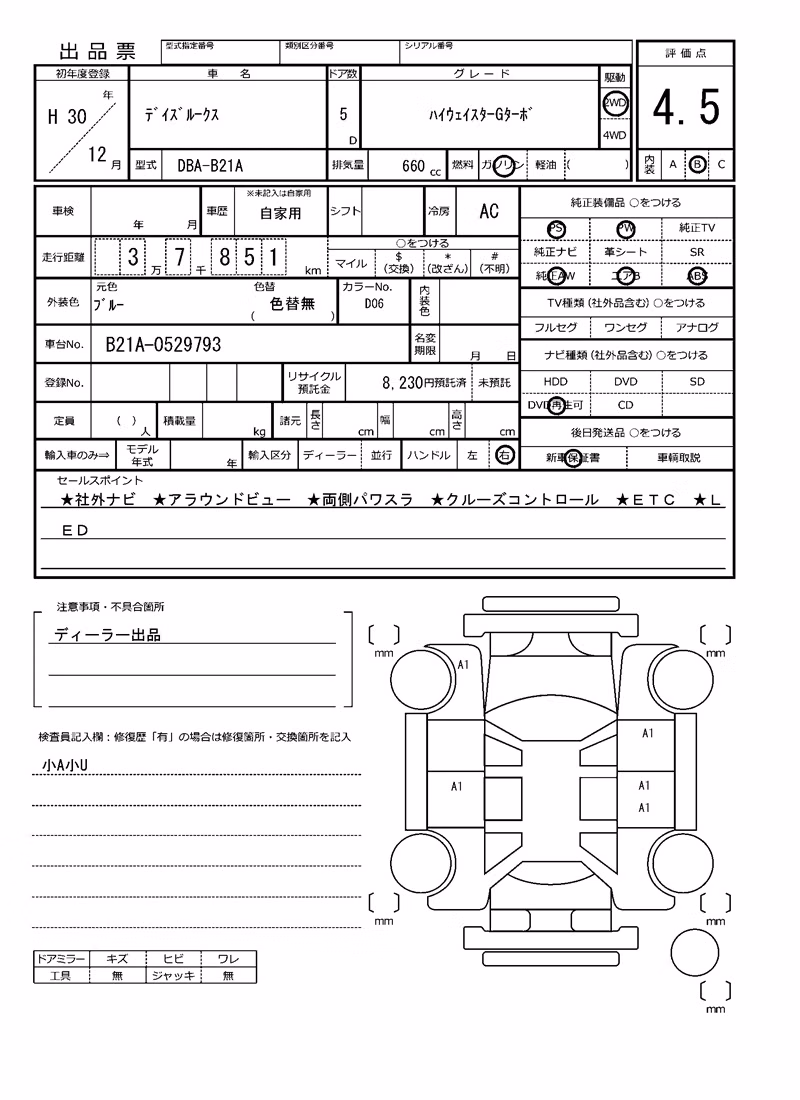 出品票
型式指定番号 類別区分番号 シリアル番号
評価点
4.5
内装 A B C
初年度登録 車名 ドア数 グレード 駆動
H 30 年 12 月
デイズルークス 5 D ハイウェイスターGターボ 2WD
4WD
型式 DBA-B21A 排気量 660 cc 燃料 ガソリン 軽油 ( )
車検 年 月 車歴 ※未記入は自家用 自家用 シフト 冷房 AC
走行距離 3 万 7 千 8 5 1 km
○をつける
マイル $ (交換) * (改ざん) # (不明)
外装色 元色 ブルー 色替 ( 色替無 ) カラーNo. D06 内装色
車台No. B21A-0529793 名変期限 月 日
登録No. リサイクル預託金 8,230円預託済 未預託
定員 ( ) 人 積載量 kg 諸元 長さ cm 幅 cm 高さ cm
輸入車のみ⇒ モデル年式 年 輸入区分 ディーラー 並行 ハンドル 左 右
純正装備品 ○をつける
PS PW 純正TV
純正ナビ 革シート SR
純正AW エアB ABS
TV種類(社外品含む)○をつける
フルセグ ワンセグ アナログ
ナビ種類(社外品含む)○をつける
HDD DVD SD
DVD再生可 CD
後日発送品 ○をつける
新車保証書 車輌取説
セールスポイント
★社外ナビ ★アラウンドビュー ★両側パワスラ ★クルーズコントロール ★ETC ★L
ED
注意事項・不具合箇所
ディーラー出品
検査員記入欄：修復歴「有」の場合は修復箇所・交換箇所を記入
小A小U
ドアミラー キズ ヒビ ワレ
工具 無 ジャッキ 無
mm
mm
A1
A1
A1
A1
A1
mm
mm
mm